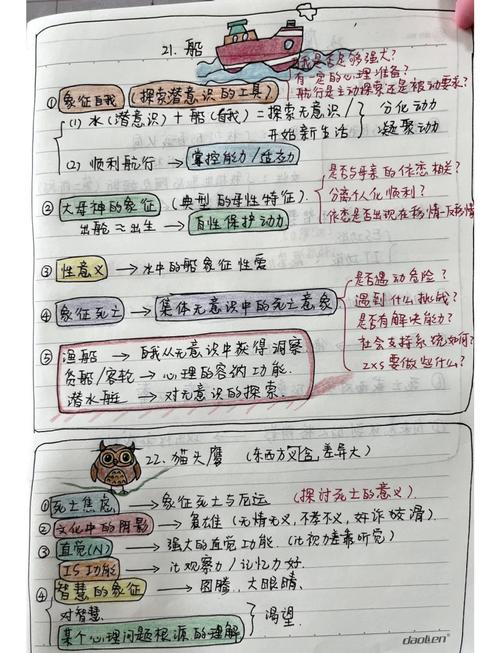 21. 船
我是否足够强大?
有一定的心理准备?
航行是主动探索还是被动要求?
① 象征自我 (探索潜意识的工具)
(1) 水(潜意识) + 船(自我) = 探索无意识 / 开始新生活 } 分化动力 凝聚动力
(2) 顺利航行 → 掌控能力 /
② 大母神的象征 (典型的母性特征)
出船 ≈ 出生 → 母性保护动力
是否与母亲的依恋相关?
分离个体化顺利?
依恋是否出现在移情-反移情
③ 性意义 → 水中的船象征性爱
④ 象征死亡 → 集体无意识中的死亡意象
是否遇动危险?
遇到什么挑战?
是否有解决能力?
社会支持系统如何?
zxs要做些什么?
⑤ 渔船 → 自我从无意识中获得洞察
货船/客轮 → 心理的容纳功能.
潜水艇 → 对无意识的探索.
22. 猫头鹰 (东西方义含,差异大)
① 死亡焦虑 → 象征死亡与厄运 (探讨死亡的意义)
② 文化中的阴影 → 枭雄 (无情无义,不孝不义,奸诈狡滑)
③ 直觉(N) → 强大的直觉功能. (比视力差靠听觉)
IS功能 → 比观察力/记忆力好.
④ 智慧的象征 → 图腾、大眼睛.
对智慧.
某个心理问题根源的理解 } 渴望.
daolien